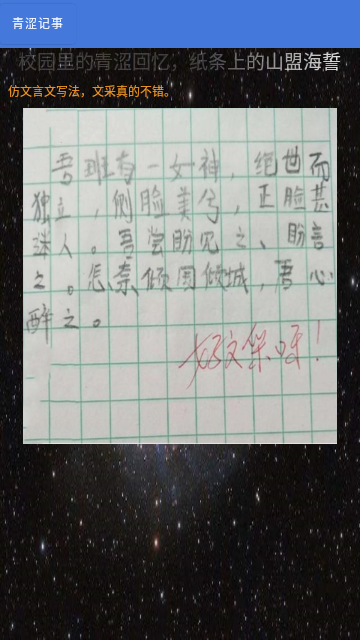 青涩记事
校园里的青涩回忆，纸条上的山盟海誓
仿文言文写法，文采真的不错。
吾班有一女神，绝世而
独立，侧脸美兮，正脸甚
迷人。吾尝盼见之、盼言
之。怎奈倾国倾城，吾心
醉之。
好文采呀！